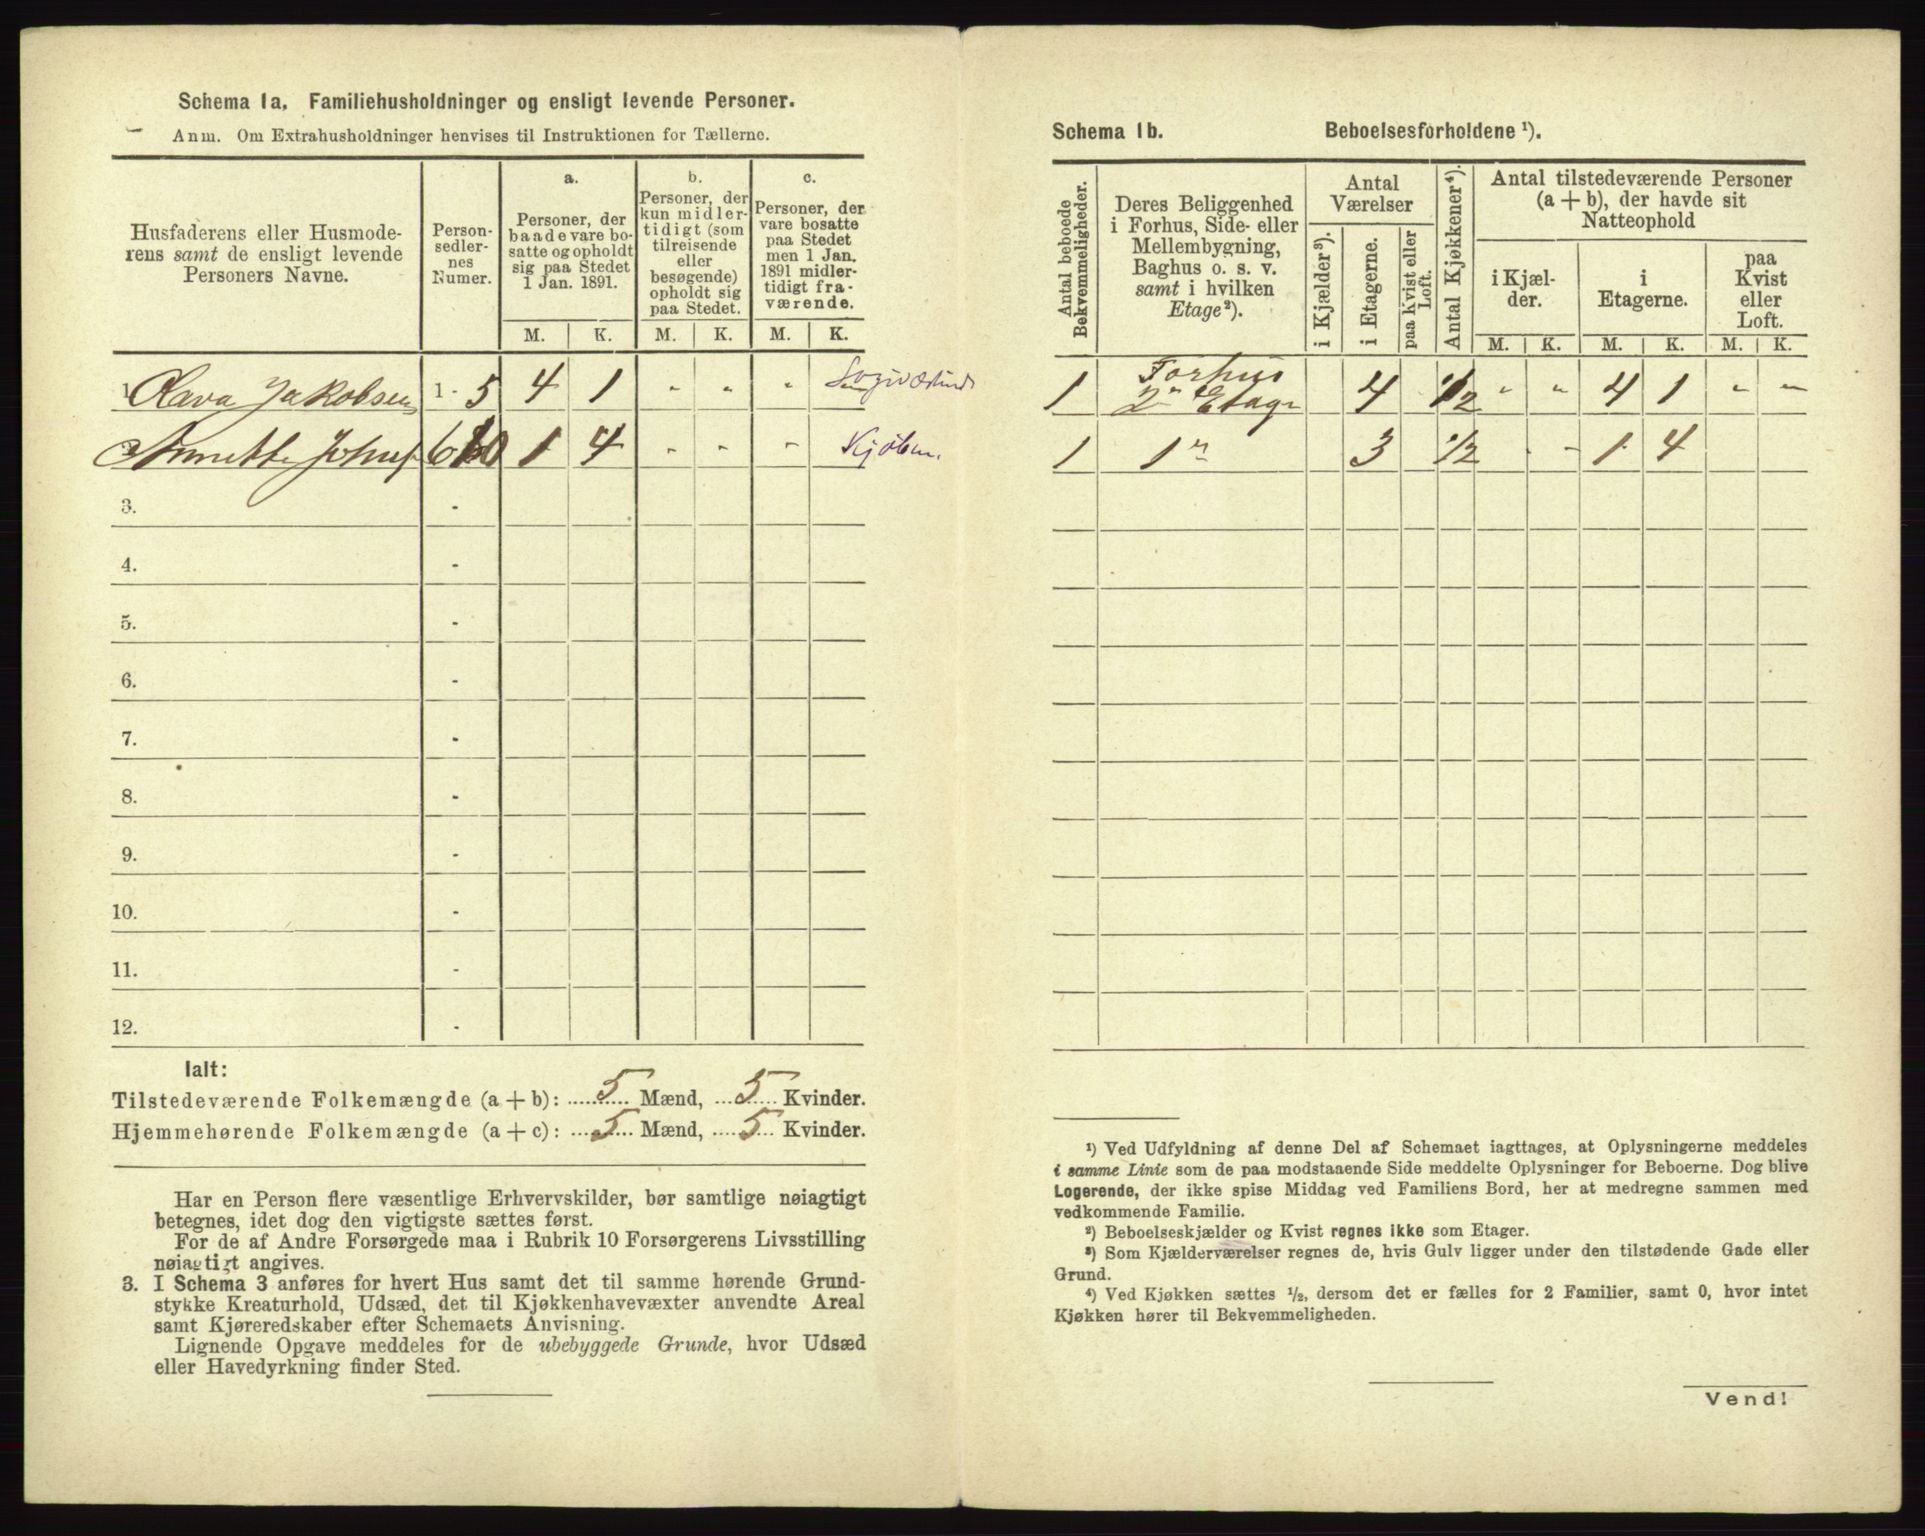 Schema 1a. Familiehusholdninger og ensligt levende Personer.
Anm. Om Extrahusholdninger henvises til Instruktionen for Tællerne.
Husfaderens eller Husmoderens samt de ensligt levende Personers Navne.
Personsedlernes Numer.
a.
Personer, der baade vare bosatte og opholdt sig paa Stedet 1 Jan. 1891.
b.
Personer, der kun midlertidigt (som tilreisende eller besøgende) opholdt sig paa Stedet.
c.
Personer, der vare bosatte paa Stedet men 1 Jan. 1891 midlertidigt fraværende.
M. K. M. K. M. K.
1. Jakobsen 1 - 5 4 1 " " "
Annette 6 10 1 4 " " "
3. -
4. -
5. -
6. -
7. -
8. -
9. -
10. -
11. -
12. -
Ialt:
Tilstedeværende Folkemængde (a + b): 5 Mænd, 5 Kvinder.
Hjemmehørende Folkemængde (a + c): 5 Mænd, 5 Kvinder.
Har en Person flere væsentlige Erhvervskilder, bør samtlige nøiagtigt
betegnes, idet dog den vigtigste sættes først.
For de af Andre Forsørgede maa i Rubrik 10 Forsørgerens Livsstilling
nøiagtigt angives.
3. I Schema 3 anføres for hvert Hus samt det til samme hørende Grund-
stykke Kreaturhold, Udsæd, det til Kjøkkenhavevæxter anvendte Areal
samt Kjøreredskaber efter Schemaets Anvisning.
Lignende Opgave meddeles for de ubebyggede Grunde, hvor Udsæd
eller Havedyrkning finder Sted.
Schema 1b. Beboelsesforholdene ¹).
Antal beboede Bekvemmeligheder.
Deres Beliggenhed i Forhus, Side- eller Mellembygning, Baghus o. s. v. samt i hvilken Etage ²).
Antal Værelser
i Kjælder ³).
i Etagerne.
paa Kvist eller Loft.
Antal Kjøkkener ⁴).
Antal tilstedeværende Personer (a + b), der havde sit Natteophold
i Kjælder.
i Etagerne.
paa Kvist eller Loft.
M. K. M. K. M. K.
1 Forhus 2n Etage 4 1/2 " " 4 1 " "
1 1n 3 1/2 - - 1 4
¹) Ved Udfyldning af denne Del af Schemaet iagttages, at Oplysningerne meddeles
i samme Linie som de paa modstaaende Side meddelte Oplysninger for Beboerne. Dog blive
Logerende, der ikke spise Middag ved Familiens Bord, her at medregne sammen med
vedkommende Familie.
²) Beboelseskjælder og Kvist regnes ikke som Etager.
³) Som Kjælderværelser regnes de, hvis Gulv ligger under den tilstødende Gade eller
Grund.
⁴) Ved Kjøkken sættes ¹/₂, dersom det er fælles for 2 Familier, samt 0, hvor intet
Kjøkken hører til Bekvemmeligheden.
Vend!